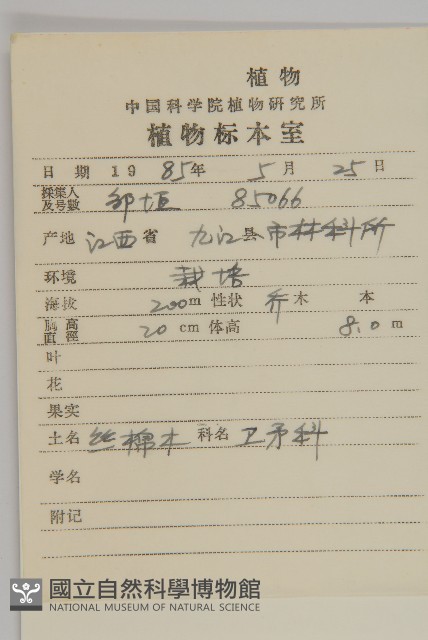 植物
中国科学院植物研究所
植物标本室
日期 1985年 5月 25日
採集人及号数 邹垣 85066
产地 江西省 九江县市林科所
环境 栽培
海拔 200m 性状 乔木 本
胸高直徑 20cm 体高 8.0m
叶
花
果实
土名 丝棉木 科名 卫矛科
学名
附记
國立自然科學博物館
NATIONAL MUSEUM OF NATURAL SCIENCE